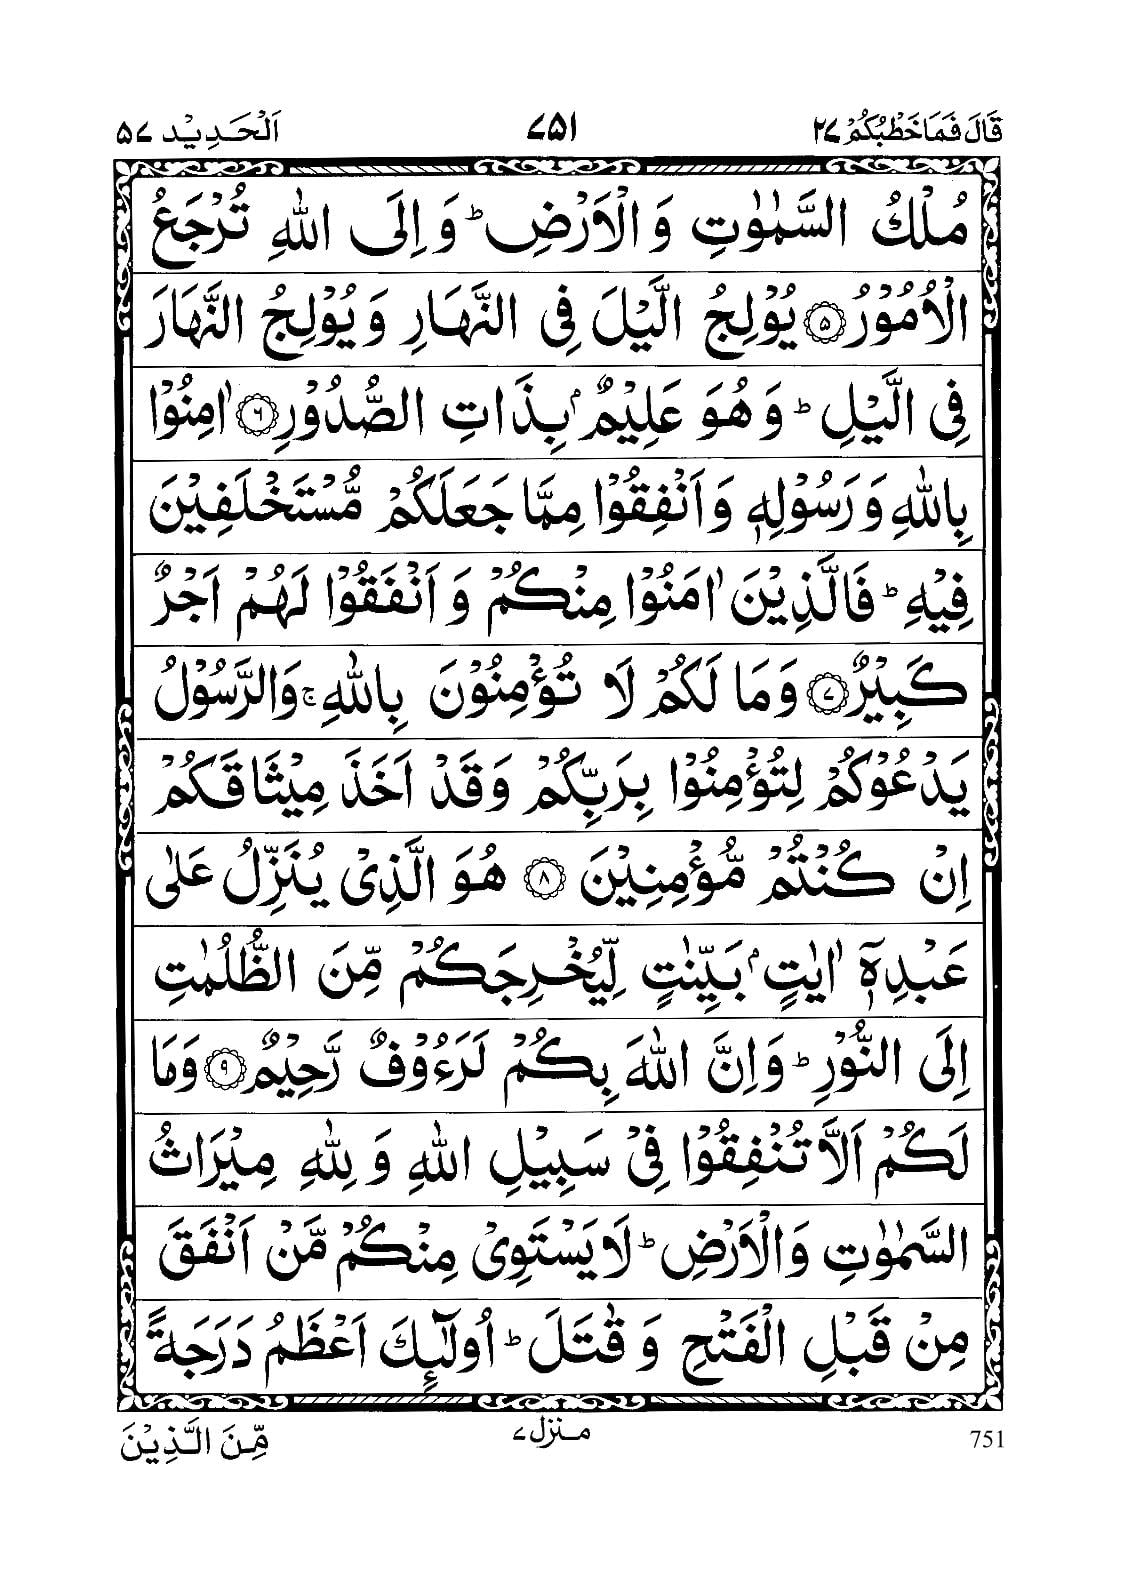 قَالَ فَمَا خَطْبُكُمْ ٢٧ ٧٥١ اَلْحَدِيْد ٥٧
مُلْكُ السَّمٰوٰتِ وَ الْاَرْضِ ؕ وَ اِلَى اللّٰهِ تُرْجَعُ
الْاُمُوْرُ ۝٥ يُوْلِجُ الَّيْلَ فِى النَّهَارِ وَ يُوْلِجُ النَّهَارَ
فِى الَّيْلِ ؕ وَ هُوَ عَلِيْمٌۢ بِذَاتِ الصُّدُوْرِ ۝٦ اٰمِنُوْا
بِاللّٰهِ وَ رَسُوْلِهٖ وَ اَنْفِقُوْا مِمَّا جَعَلَكُمْ مُّسْتَخْلَفِيْنَ
فِيْهِ ؕ فَالَّذِيْنَ اٰمَنُوْا مِنْكُمْ وَ اَنْفَقُوْا لَهُمْ اَجْرٌ
كَبِيْرٌ ۝٧ وَ مَا لَكُمْ لَا تُؤْمِنُوْنَ بِاللّٰهِ ۚ وَالرَّسُوْلُ
يَدْعُوْكُمْ لِتُؤْمِنُوْا بِرَبِّكُمْ وَ قَدْ اَخَذَ مِيْثَاقَكُمْ
اِنْ كُنْتُمْ مُّؤْمِنِيْنَ ۝٨ هُوَ الَّذِىْ يُنَزِّلُ عَلٰى
عَبْدِهٖۤ اٰيٰتٍۭ بَيِّنٰتٍ لِّيُخْرِجَكُمْ مِّنَ الظُّلُمٰتِ
اِلَى النُّوْرِ ؕ وَ اِنَّ اللّٰهَ بِكُمْ لَرَءُوْفٌ رَّحِيْمٌ ۝٩ وَ مَا
لَكُمْ اَلَّا تُنْفِقُوْا فِىْ سَبِيْلِ اللّٰهِ وَ لِلّٰهِ مِيْرَاثُ
السَّمٰوٰتِ وَ الْاَرْضِ ؕ لَا يَسْتَوِىْ مِنْكُمْ مَّنْ اَنْفَقَ
مِنْ قَبْلِ الْفَتْحِ وَ قٰتَلَ ؕ اُولٰٓئِكَ اَعْظَمُ دَرَجَةً
751 منزل ٧ مِّنَ الَّذِيْنَ